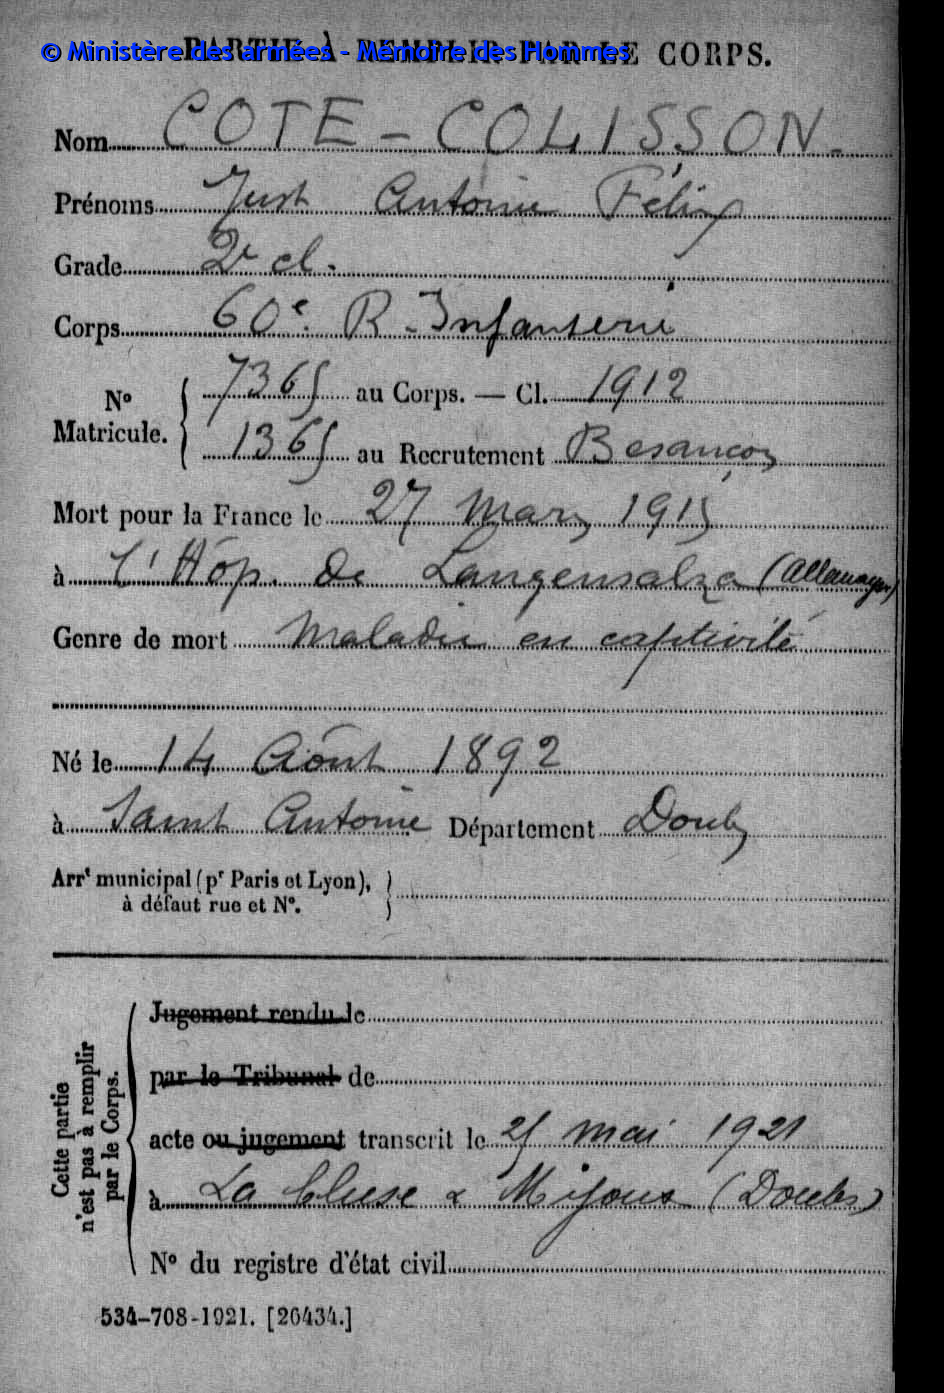 PARTIE À REMPLIR PAR LE CORPS.
© Ministère des armées - Mémoire des Hommes
Nom COTE-COLISSON.
Prénoms Just Antoine Félix
Grade 2e cl.
Corps 60e R. Infanterie
No Matricule. { 7365 au Corps. — Cl. 1912
1365 au Recrutement Besançon
Mort pour la France le 27 Mars 1915
à l'Hôp. de Langensalza (Allemagne)
Genre de mort Maladie en captivité
Né le 14 Août 1892
à Saint Antoine Département Doubs
Arrt municipal (pr Paris et Lyon), }
à défaut rue et No.
Cette partie n'est pas à remplir par le Corps.
Jugement rendu le
par le Tribunal de
acte ou jugement transcrit le 25 mai 1921
à La Cluse & Mijoux (Doubs)
No du registre d'état civil
534-708-1921. [26434.]